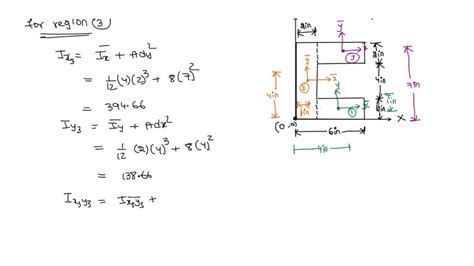 for region (3)
Ix₃ = I̅x + Ady²
= 1/12 (4)(2)³ + 8(7)²
= 394.66
Iy₃ = I̅y + Adx²
= 1/12 (2)(4)³ + 8(4)²
= 138.66
Ix₃y₃ = I̅x₃y₃ +
2in
y̅
x̅
3
2in
y̅
x̅
2
4in
4in
7in
y̅
x̅
1
1in
1in
(0,0)
x
6in
4in